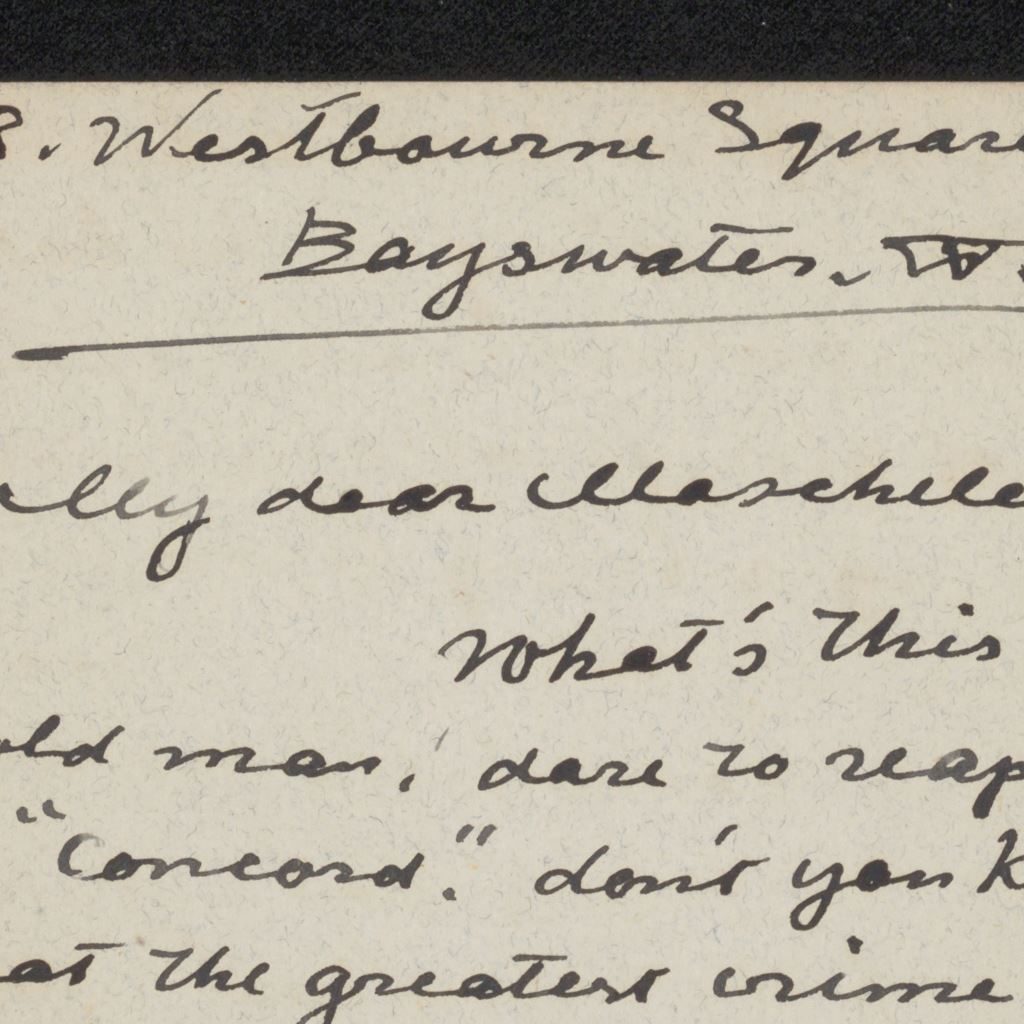 8. Westbourne Square
Bayswater, W.
My dear Maschele
What's this
old man, dare to reap
"Concord." don't you k
at the greatest crime